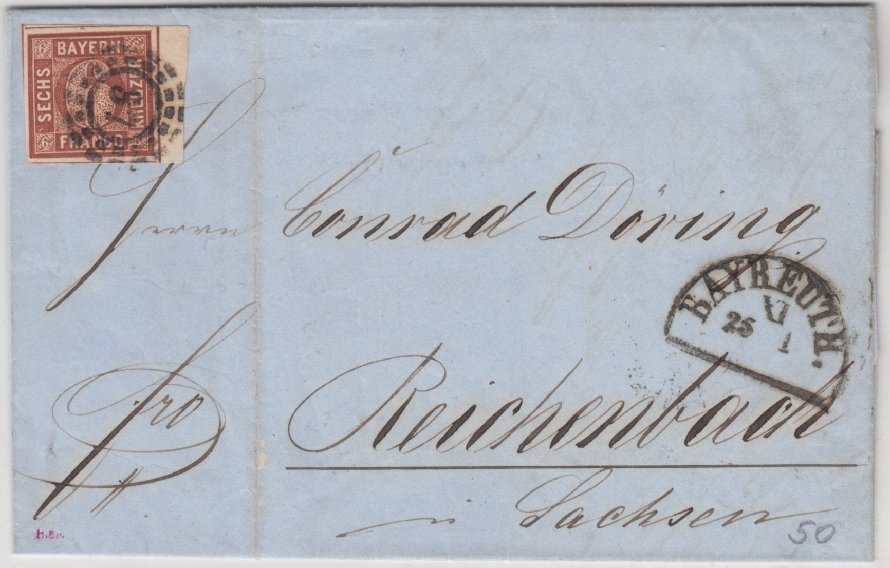 BAYERN
SECHS
KREUZER
FRANCO
6
6
Herrn Conrad Döring
BAYREUTH.
VI
25 1
fro Reichenbach
Sachsen
50